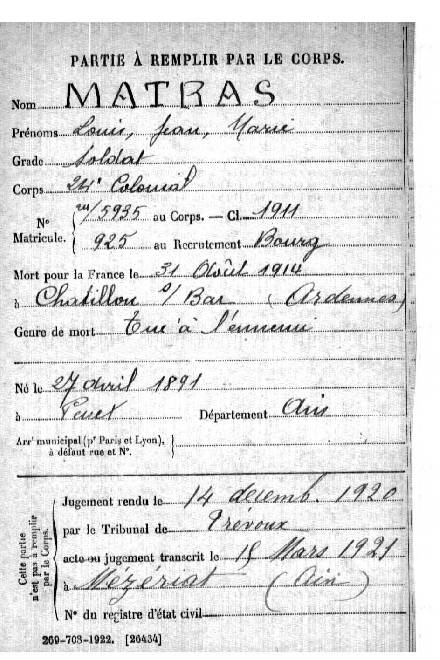 PARTIE À REMPLIR PAR LE CORPS.
Nom MATRAS
Prénoms Louis, Jean, Marie
Grade Soldat
Corps 24e Colonial
N° Matricule. /5935 au Corps. — Cl. 1911
925 au Recrutement Bourg
Mort pour la France le 31 Août 1914
à Chatillon s/ Bar (Ardennes)
Genre de mort Tué à l'ennemi
Né le 27 avril 1891
à Département Ain
Arrt municipal (pr Paris et Lyon),
à défaut rue et N°.
Cette partie
n'est pas à remplir
par le Corps.
Jugement rendu le 14 decemb. 1920
par le Tribunal de Trévoux
acte ou jugement transcrit le Mars 1921
à Mézériat (Ain)
N° du registre d'état civil
269-708-1922. [26434]